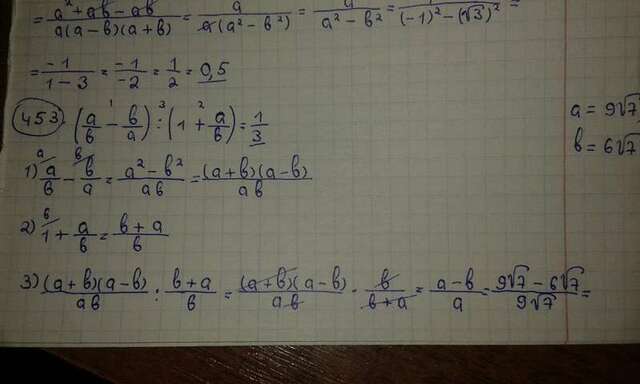 = a² + ab - ab / a(a - b)(a + b) = a / a(a² - b²) = a / a² - b² = / (-1)² - (√3)² =
= -1 / 1 - 3 = -1 / -2 = 1 / 2 = 0,5
453 (a/b - b/a) : (1 + a/b) = 1/3 a = 9√7
1) a/b - b/a = a² - b² / ab = (a + b)(a - b) / ab b = 6√7
2) 1 + a/b = b + a / b
3) (a + b)(a - b) / ab : b + a / b = (a + b)(a - b) / ab · b / b + a = a - b / a = 9√7 - 6√7 / 9√7 =